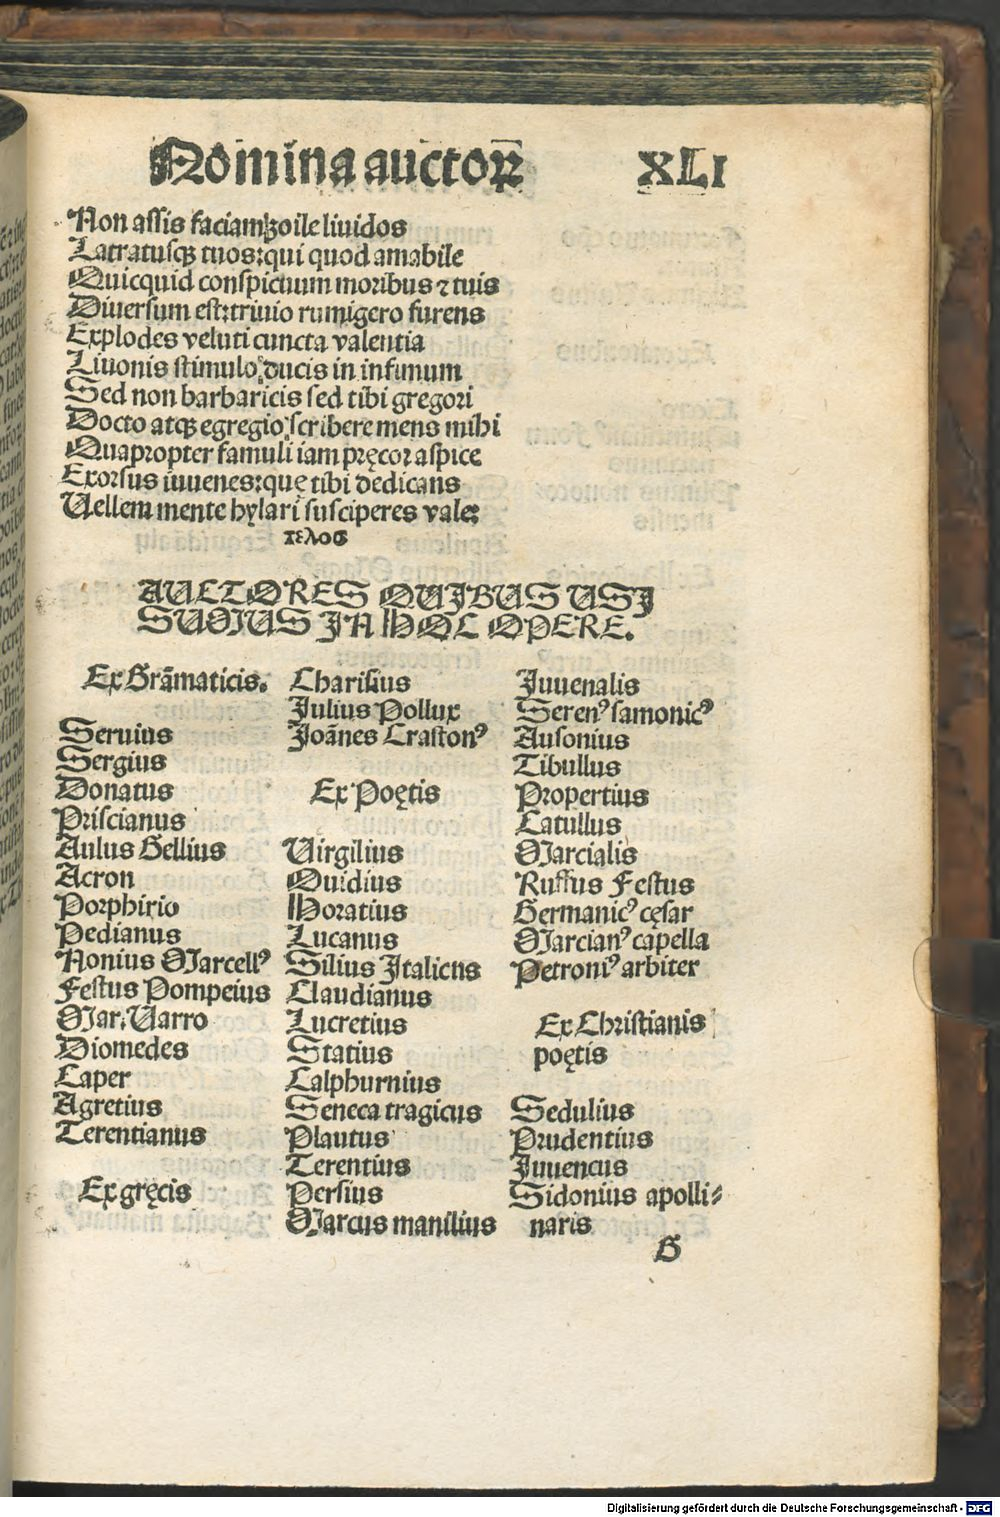 Nomina auctoꝝ XLI
Non assis faciam zoile liuidos
Latratusqꝫ tuos: qui quod amabile
Quicquid conspicuum moribus ⁊ tuis
Diuersum est: triuio rumigero furens
Explodes veluti cuncta valentia
Liuonis stimulo: ducis in infimum
Sed non barbaricis sed tibi gregori
Docto atqꝫ egregio: scribere mens mihi
Quapropter famuli iam pręcor aspice
Exorsus iuuenes: quę tibi dedicans
Vellem mente hylari susciperes vale:
τελος
AUCTORES QUIBUS USI
SUMUS IN HOC OPERE.
Ex Grāmaticis.
Seruius
Sergius
Donatus
Priscianus
Aulus Gellius
Acron
Porphirio
Pedianus
Nonius Marcellꝰ
Festus Pompeius
Mar. Varro
Diomedes
Caper
Agretius
Terentianus
Ex gręcis
Charisius
Julius Pollux
Joānes Crastonꝰ
Ex Poętis
Virgilius
Ouidius
Horatius
Lucanus
Silius Italicus
Claudianus
Lucretius
Statius
Calphurnius
Seneca tragicus
Plautus
Terentius
Persius
Marcus manilius
Juuenalis
Serenꝰ samonicꝰ
Ausonius
Tibullus
Propertius
Catullus
Marcialis
Ruffus Festus
Germanicꝰ cęsar
Marcianꝰ capella
Petroniꝰ arbiter
Ex Christianis
poętis
Sedulius
Prudentius
Juuencus
Sidonius apolli⸗
naris
G
Digitalisierung gefördert durch die Deutsche Forschungsgemeinschaft - DFG